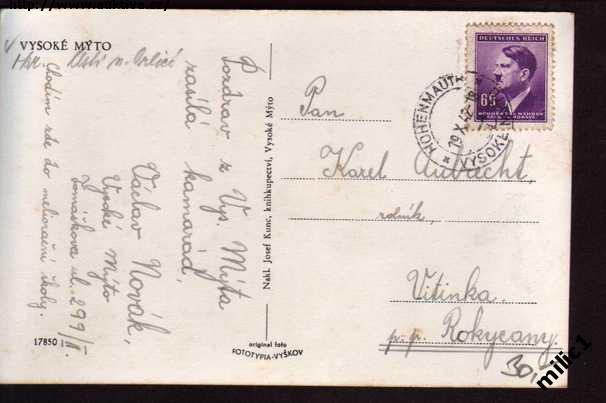 VYSOKÉ MÝTO
Ústí n. Orlicí
Pozdrav z Vys. Mýta
zasílá kamarád,
Václav Novák,
Vysoké Mýto
Tomáškova ul. 299/II.
Chodím zde do meliorační školy.
17850
Nakl. Josef Kunc, knihkupectví, Vysoké Mýto
original foto
FOTOTYPIA-VYŠKOV
DEUTSCHES REICH
60
BÖHMEN UND MÄHREN
HOHENMAUTH 1
VYSOKÉ M
Pan
Karel Aubrecht,
rolník,
Vitinka,
p.p. Rokycany.
30,-
milic1